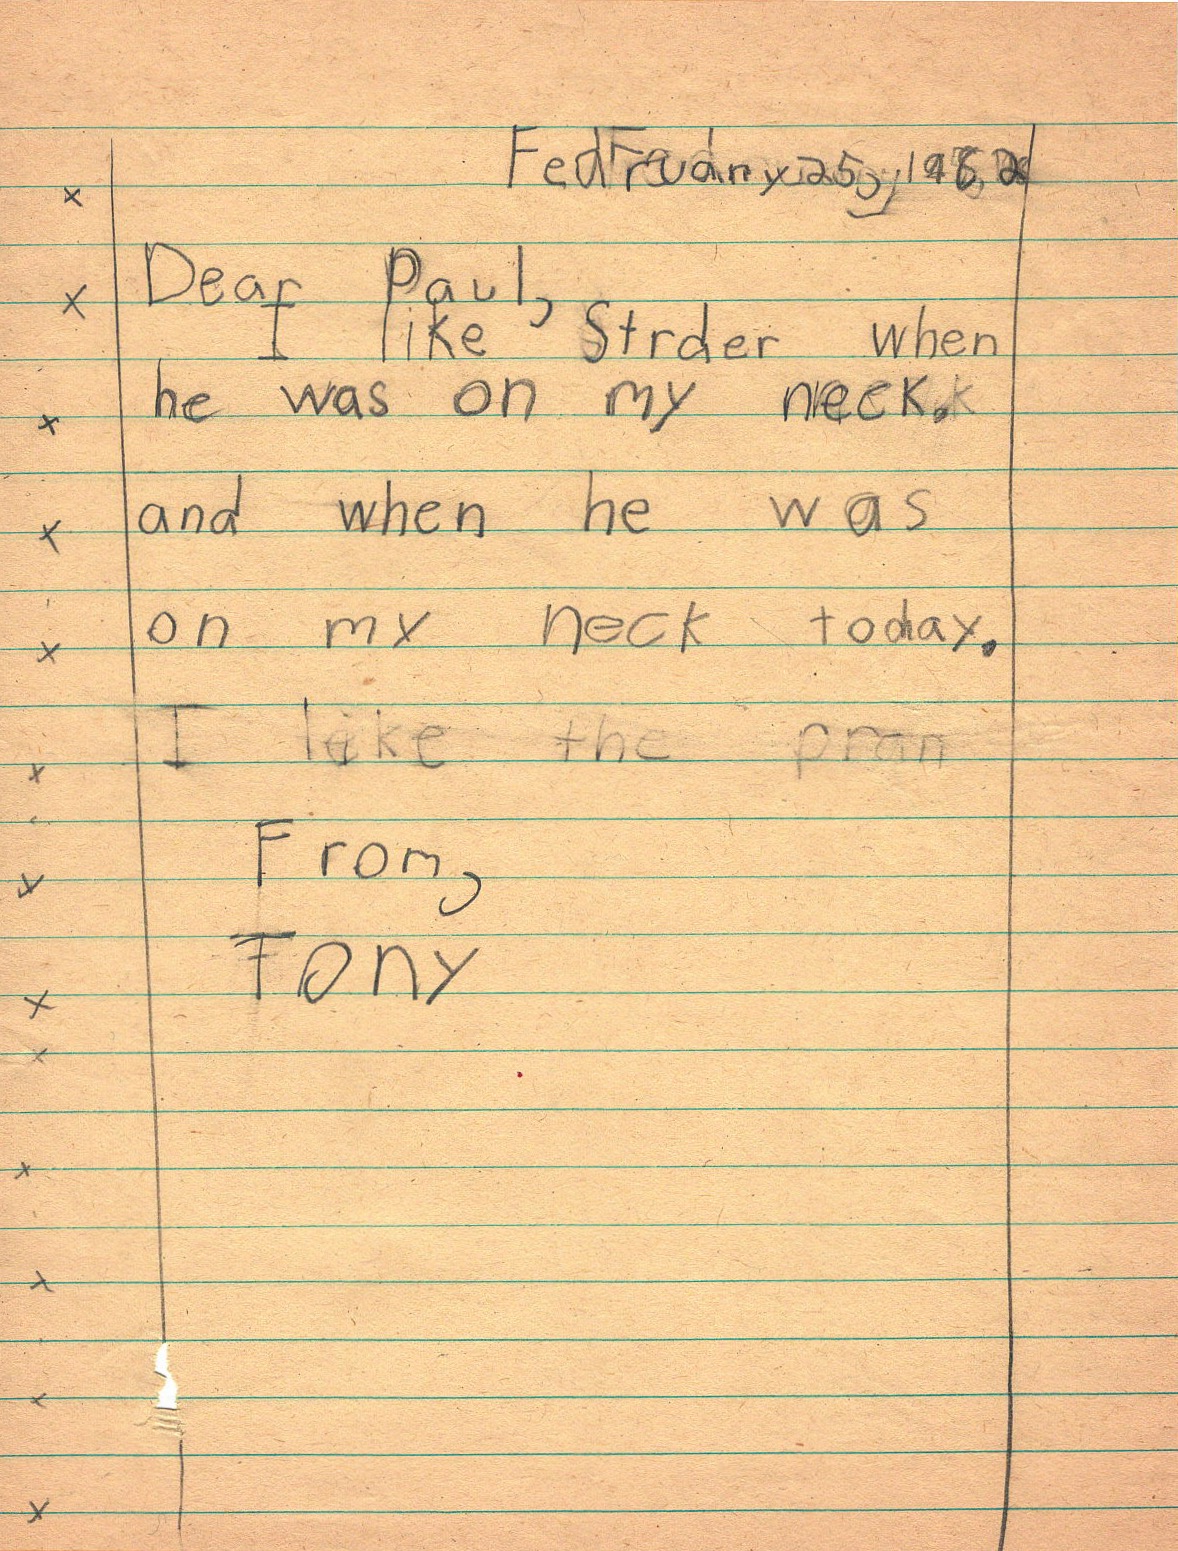 Dear Paul,
I like Strder when
he was on my neck.
and when he was
on my neck today.
I like the
From,
Tony